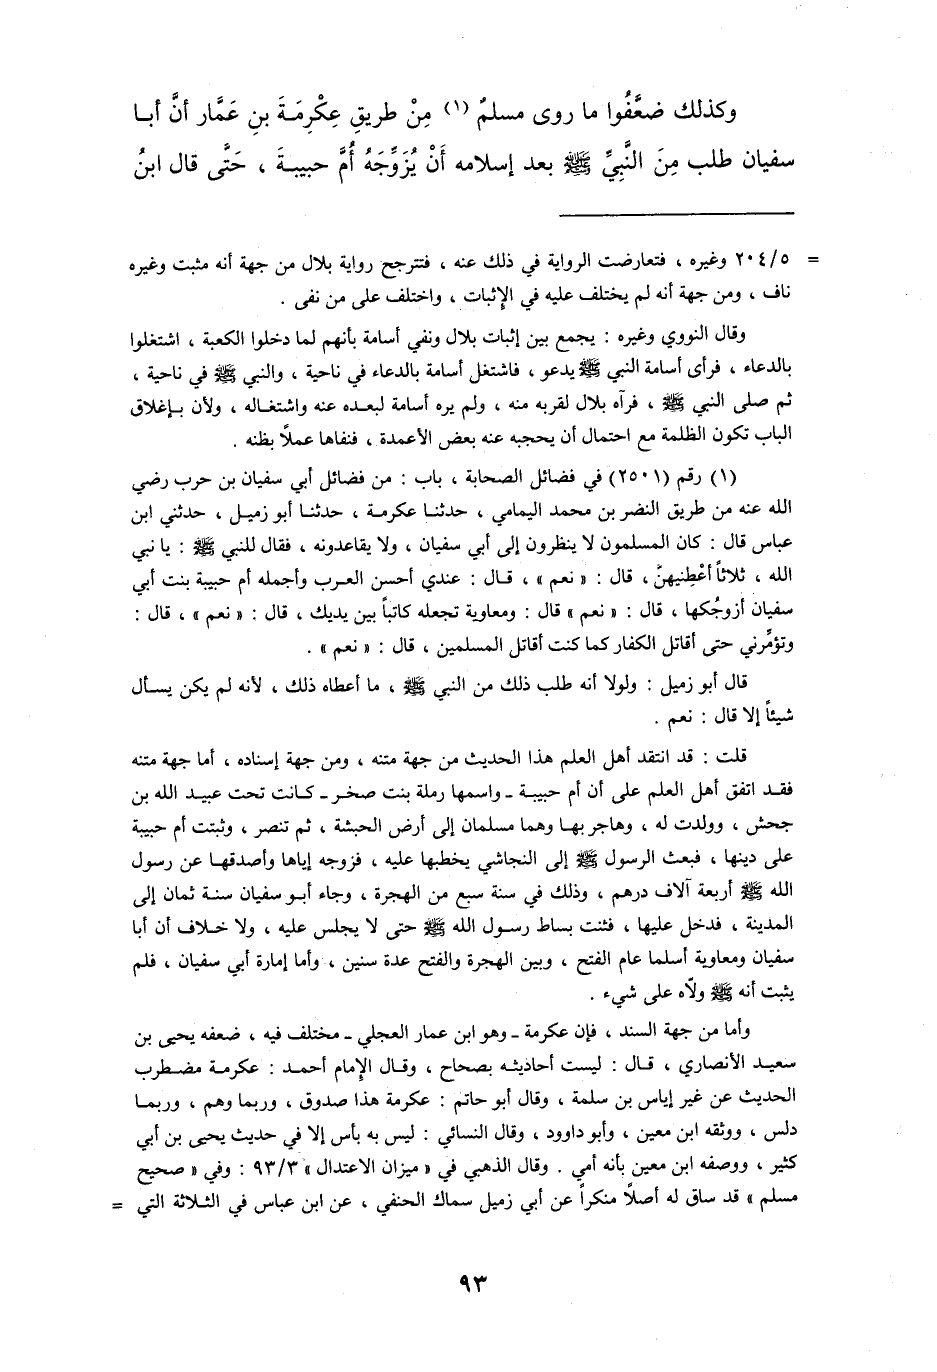 وكذلك ضعَّفُوا ما روى مسلمٌ (١) مِنْ طريقِ عِكْرِمَةَ بنِ عَمَّار أنَّ أبا
سفيان طلب مِنَ النَّبِيِّ ﷺ بعد إسلامه أَنْ يُزَوِّجَهُ أُمَّ حبيبةَ ، حَتَّى قال ابنُ
= ٢٠٤/٥ وغيره ، فتعارضت الرواية في ذلك عنه ، فتترجح رواية بلال من جهة أنه مثبت وغيره
ناف ، ومن جهة أنه لم يختلف عليه في الإثبات ، واختلف على من نفى .
وقال النووي وغيره : يجمع بين إثبات بلال ونفي أسامة بأنهم لما دخلوا الكعبة ، اشتغلوا
بالدعاء ، فرأى أسامة النبي ﷺ يدعو ، فاشتغل أسامة بالدعاء في ناحية ، والنبي ﷺ في ناحية ،
ثم صلى النبي ﷺ ، فرآه بلال لقربه منه ، ولم يره أسامة لبعده عنه واشتغاله ، ولأن بإغلاق
الباب تكون الظلمة مع احتمال أن يحجبه عنه بعض الأعمدة ، فنفاها عملاً بظنه .
(١) رقم (٢٥٠١) في فضائل الصحابة ، باب : من فضائل أبي سفيان بن حرب رضي
الله عنه من طريق النضر بن محمد اليمامي ، حدثنا عكرمة ، حدثنا أبو زميل ، حدثني ابن
عباس قال : كان المسلمون لا ينظرون إلى أبي سفيان ، ولا يقاعدونه ، فقال للنبي ﷺ : يا نبي
الله ، ثلاثاً أعْطِنيهنَّ ، قال : « نعم » ، قال : عندي أحسن العرب وأجمله أم حبيبة بنت أبي
سفيان أزوجُكها ، قال : « نعم » قال : ومعاوية تجعله كاتباً بين يديك ، قال : « نعم » ، قال :
وتؤمِّرني حتى أقاتل الكفار كما كنت أقاتل المسلمين ، قال : « نعم » .
قال أبو زميل : ولولا أنه طلب ذلك من النبي ﷺ ، ما أعطاه ذلك ، لأنه لم يكن يسأل
شيئاً إلا قال : نعم .
قلت : قد انتقد أهل العلم هذا الحديث من جهة متنه ، ومن جهة إسناده ، أما جهة متنه
فقد اتفق أهل العلم على أن أم حبيبة ـ واسمها رملة بنت صخر ـ كانت تحت عبيد الله بن
جحش ، وولدت له ، وهاجر بها وهما مسلمان إلى أرض الحبشة ، ثم تنصر ، وثبتت أم حبيبة
على دينها ، فبعث الرسول ﷺ إلى النجاشي يخطبها عليه ، فزوجه إياها وأصدقها عن رسول
الله ﷺ أربعة آلاف درهم ، وذلك في سنة سبع من الهجرة ، وجاء أبو سفيان سنة ثمان إلى
المدينة ، فدخل عليها ، فثنت بساط رسول الله ﷺ حتى لا يجلس عليه ، ولا خلاف أن أبا
سفيان ومعاوية أسلما عام الفتح ، وبين الهجرة والفتح عدة سنين ، وأما إمارة أبي سفيان ، فلم
يثبت أنه ﷺ ولّاه على شيء .
وأما من جهة السند ، فإن عكرمة ـ وهو ابن عمار العجلي ـ مختلف فيه ، ضعفه يحيى بن
سعيد الأنصاري ، قال : ليست أحاديثه بصحاح ، وقال الإمام أحمد : عكرمة مضطرب
الحديث عن غير إياس بن سلمة ، وقال أبو حاتم : عكرمة هذا صدوق ، وربما وهم ، وربما
دلس ، ووثقه ابن معين ، وأبو داوود ، وقال النسائي : ليس به بأس إلا في حديث يحيى بن أبي
كثير ، ووصفه ابن معين بأنه أمي . وقال الذهبي في « ميزان الاعتدال » ٩٣/٣ : وفي « صحيح
مسلم » قد ساق له أصلاً منكراً عن أبي زميل سماك الحنفي ، عن ابن عباس في الثلاثة التي =
٩٣